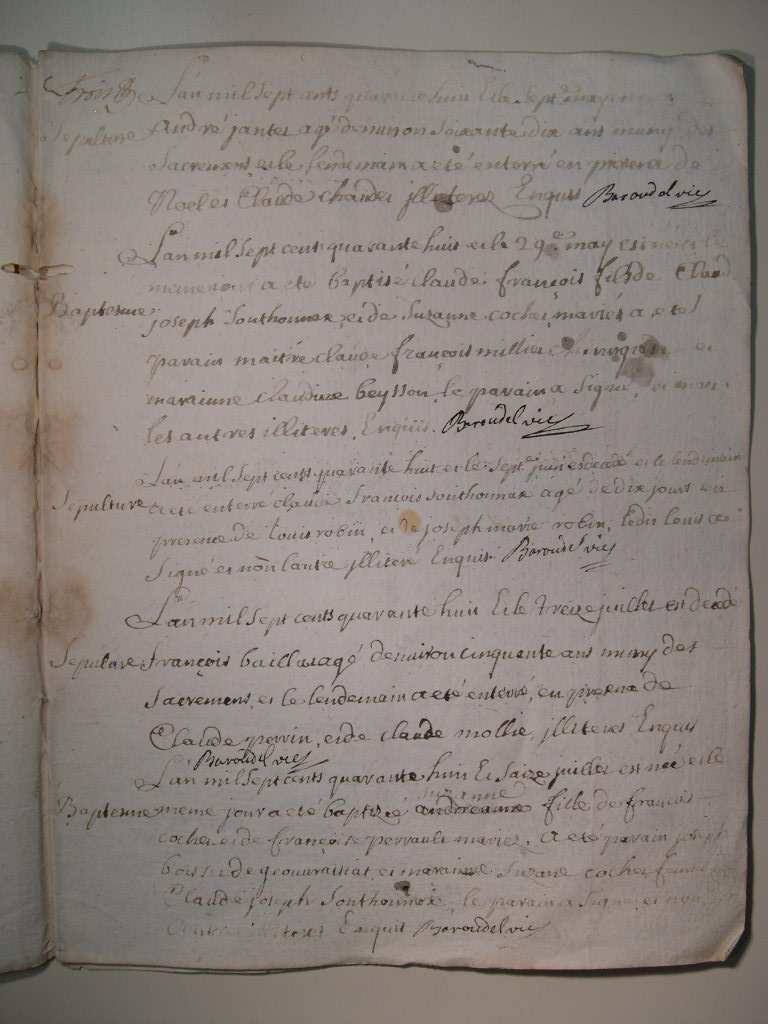 Trois
L'an mil sept cents quarante huit et le sept
Sepulture
André jantet agé denviron soixante dix ans muny des
sacremens et le lendemain a eté enterré en presence de
Noel et Claude chanel jlliteres Enquis Baroudel vic
L'an mil sept cent quarante huit et le 29e may est né et le
meme jour a eté baptisé claude françois fils de Claude
Baptesme
joseph Southonnax et de Suzanne cochet mariés a eté
parain maitre claude françois millier et
maraine claudine beysson, le parain a signé, et non
les autres illiteres, Enquis. Baroudel vic
L'an mil sept cents quarante huit et le sept juin est decedé et le lendemain
Sepulture
a eté enterré claude françois southonnax agé de dix jours en
presence de Louis robin, et de joseph marie robin, ledit louis a
signé et non lautre jlliteré Enquis Baroudel vic
L'an mil sept cents quarante huit et le treize juillet est decedé
Sepulture
françois baillat agé denviron cinquante ans muny des
sacremens, et le lendemain a eté enterré, en presence de
Claude perrin, et de claude mollie, jlliteres Enquis
Baroudel vic
L'an mil sept cents quarante huit et saize juillet est née et le
Baptesme
meme jour a eté baptizée suzanne fille de françois
cochet et de françoise perrault mariez, a eté parain joseph
et maraine Suzane cochet femme
Claude joseph Southonnax, le parain a signé et non
Enquis Baroudel vic